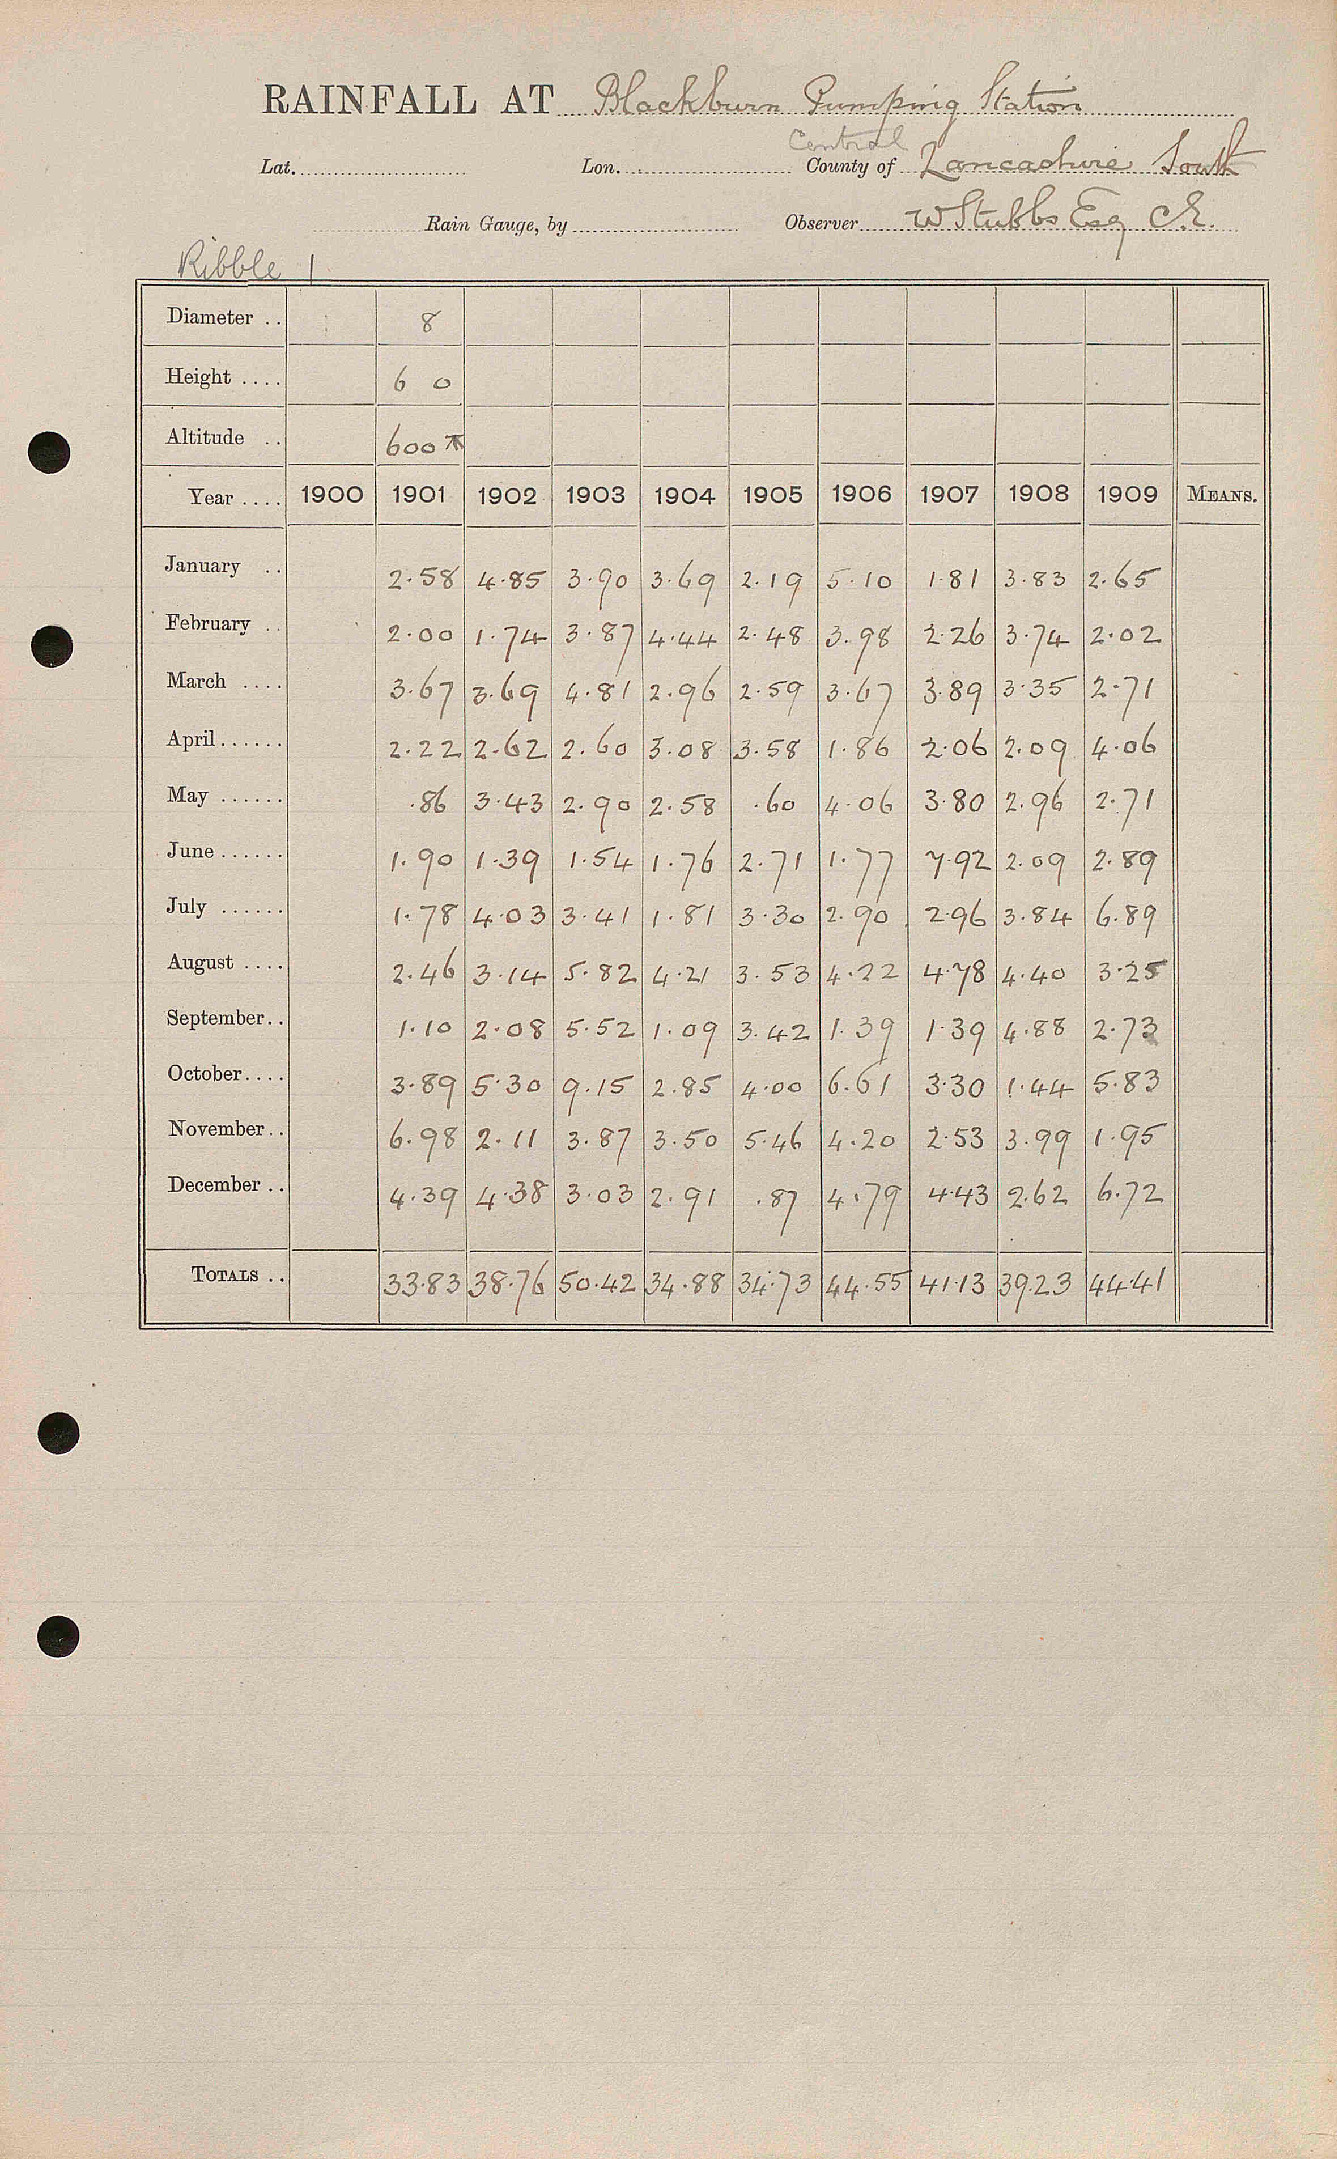 RAINFALL AT Blackburn Pumping Station
Central
Lat. Lon. County of Lancashire South
Rain Gauge, by Observer W Stubbs Esq C.E.
Ribble 1
Diameter .. 8
Height .... 6 0
Altitude .. 600
Year .... 1900 1901 1902 1903 1904 1905 1906 1907 1908 1909 MEANS.
January .. 2.58 4.85 3.90 3.69 2.19 5.10 1.81 3.83 2.65
February .. 2.00 1.74 3.87 4.44 2.48 3.98 2.26 3.74 2.02
March .... 3.67 3.69 4.81 2.96 2.59 3.67 3.89 3.35 2.71
April...... 2.22 2.62 2.60 3.08 3.58 1.86 2.06 2.09 4.06
May ...... .86 3.43 2.90 2.58 .60 4.06 3.80 2.96 2.71
June ...... 1.90 1.39 1.54 1.76 2.71 1.77 7.92 2.09 2.89
July ...... 1.78 4.03 3.41 1.81 3.30 2.90 2.96 3.84 6.89
August .... 2.46 3.14 5.82 4.21 3.53 4.22 4.78 4.40 3.25
September.. 1.10 2.08 5.52 1.09 3.42 1.39 1.39 4.88 2.73
October.... 3.89 5.30 9.15 2.85 4.00 6.61 3.30 1.44 5.83
November.. 6.98 2.11 3.87 3.50 5.46 4.20 2.53 3.99 1.95
December .. 4.39 4.38 3.03 2.91 .87 4.79 4.43 2.62 6.72
TOTALS .. 33.83 38.76 50.42 34.88 34.73 44.55 41.13 39.23 44.41